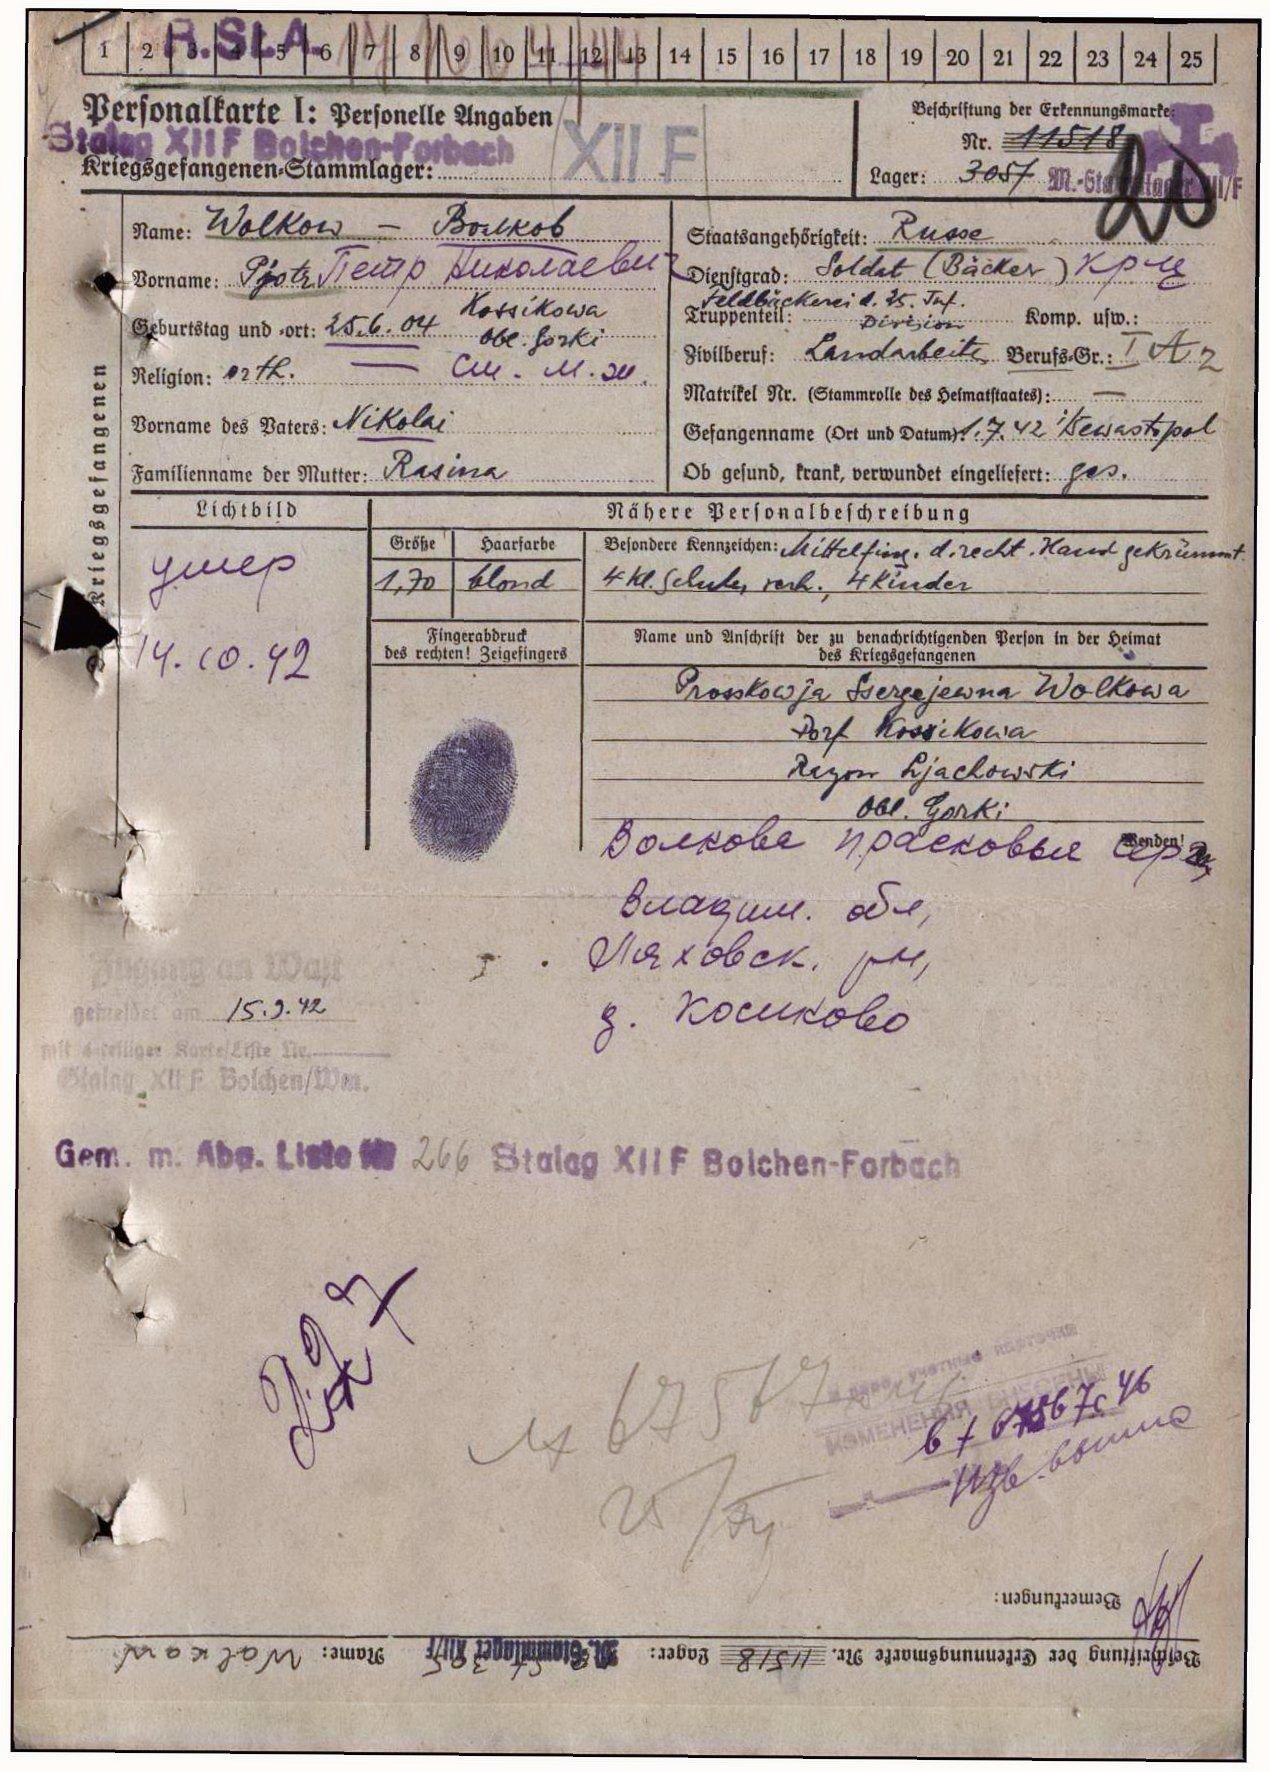 1 2 3 4 5 6 7 8 9 10 11 12 13 14 15 16 17 18 19 20 21 22 23 24 25
Personalkarte I: Personelle Angaben
Beschriftung der Erkennungsmarke:
Stalag XII F Bolchen-Forbach
XII F
Nr. 11518
Kriegsgefangenen-Stammlager:
Lager: 305/
Name: Wolkow — Волков
Staatsangehörigkeit: Russe
Vorname: Pjotr Петр Николаевич
Dienstgrad: Soldat (Bäcker) кр-ц
Geburtstag und -ort: 25.6.04 Kossikowa
Obl. Gorki
Truppenteil: Feldbäckerei d. 25. Inf. Division
Komp. usw.:
Zivilberuf: Landarbeiter Berufs-Gr.: I A 2
Religion: orth. —
Matrikel Nr. (Stammrolle des Heimatstaates): —
Vorname des Vaters: Nikolai
Gefangennahme (Ort und Datum): 1.7.42 Sewastopol
Familienname der Mutter: Rasina
Ob gesund, krank, verwundet eingeliefert: ges.
Kriegsgefangenen
Lichtbild
Nähere Personalbeschreibung
Größe
Haarfarbe
Besondere Kennzeichen: Mittelfing. d. recht. Hand gekrümmt.
1,70
blond
4 Kl. Schule, verh., 4 Kinder
умер
14.10.42
Fingerabdruck
des rechten! Zeigefingers
Name und Anschrift der zu benachrichtigenden Person in der Heimat
des Kriegsgefangenen
Prosskowja Ssergejewna Wolkowa
Dorf Kossikowa
Rayon Ljachowski
Obl. Gorki
Wenden!
Волкова Прасковья Серг
Владим. обл,
Ляховск. рн,
д. Косиково
Zugang an Wast
gemeldet am 15.9.42
mit 4-teiliger Karte/Liste Nr.
Stalag XII F Bolchen/Wm.
Gem. m. Abg. Liste Nr 266 Stalag XII F Bolchen-Forbach
67567
ИЗМЕНЕНИЯ ВНЕСЕНЫ
Bemerkungen:
Beschriftung der Erkennungsmarke Nr. 11518 Lager: M.-Stammlager XII/F Name: Wolkow